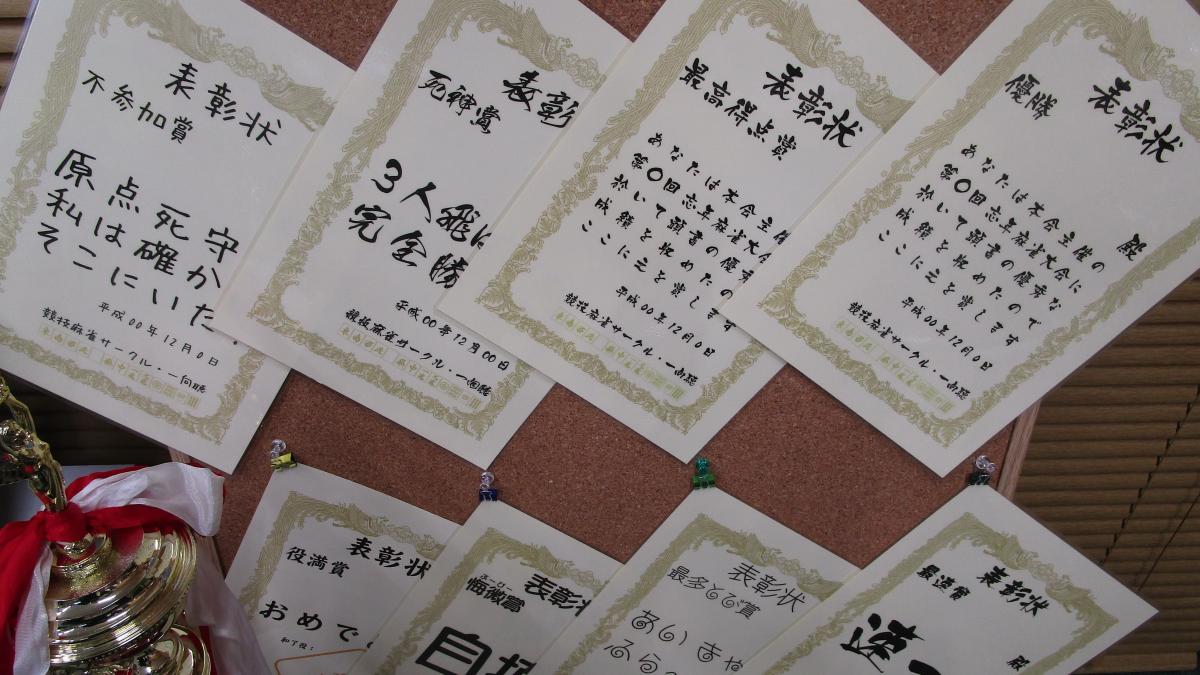 表彰状
不参加賞
原点死守
私は確か
そこにいた
平成00年12月0日
競技麻雀サークル・一向聴
表彰
死神賞
3人飛ば
完全勝
平成00年12月00日
競技麻雀サークル・一向聴
表彰状
最高得点賞
あなたは本会主催
第0回忘年麻雀大会
於いて頭書の優秀
成績を収めたの
ここにこを賞します
平成00年12月0日
競技麻雀サークル・一向聴
表彰状
優勝
殿
あなたは本会主催の
第0回忘年麻雀大会に
於いて頭書の優秀な
成績を収めたので
ここにこを賞します
平成00年12月0日
競技麻雀サークル・一向聴
表彰状
役満賞
おめで
和了役:
表彰状
賞
自
表彰状
最多とび賞
あいきゃ
ふら
表彰状
最速賞
殿
速